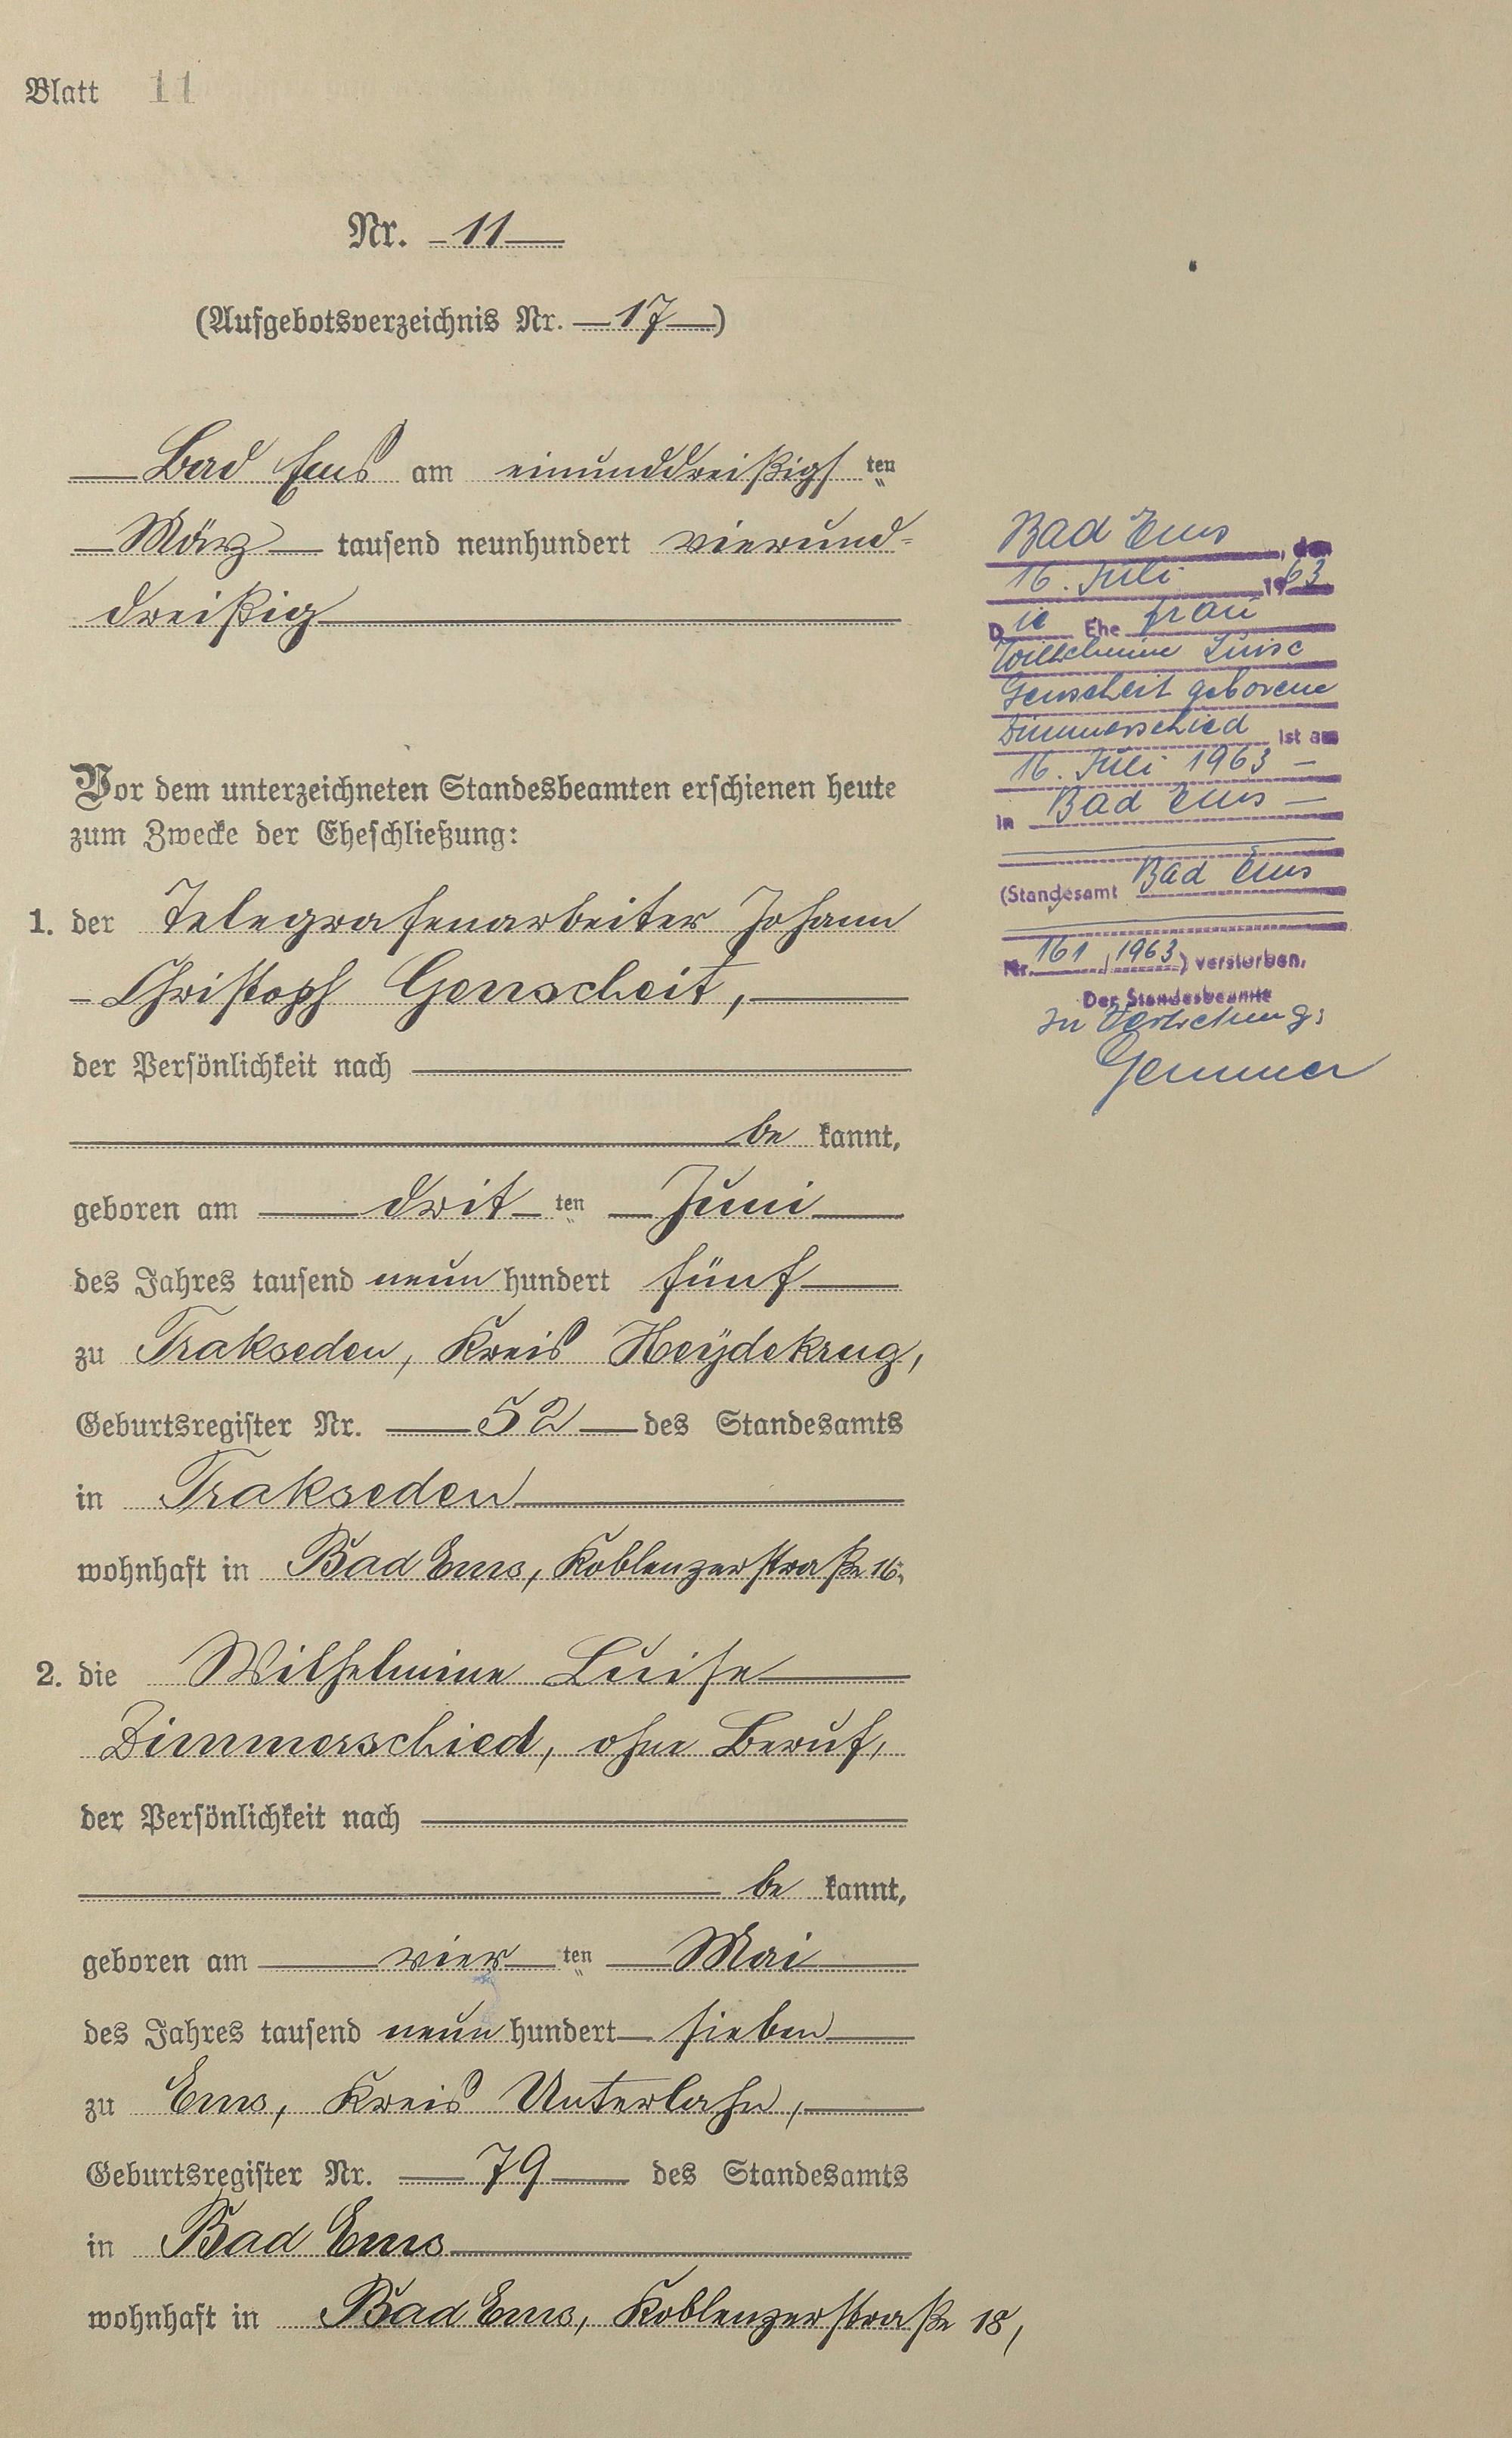 Blatt 11
Nr. 11
(Aufgebotsverzeichnis Nr. 17)
Bad Ems am einunddreißigsten
März tausend neunhundert vierund-
dreißig
Vor dem unterzeichneten Standesbeamten erschienen heute
zum Zwecke der Eheschließung:
1. der Telegrafenarbeiter Johann
Christoph Genscheit,
der Persönlichkeit nach
be kannt,
geboren am dritten Juni
des Jahres tausend neun hundert fünf
zu Trakseden, Kreis Heÿdekrug,
Geburtsregister Nr. 52 des Standesamts
in Trakseden
wohnhaft in Bad Ems, Koblenzerstraße 16;
2. die Wilhelmine Luise
Zimmerschied, ohne Beruf,
der Persönlichkeit nach
be kannt,
geboren am vierten Mai
des Jahres tausend neun hundert sieben
zu Ems, Kreis Unterlahn,
Geburtsregister Nr. 79 des Standesamts
in Bad Ems
wohnhaft in Bad Ems, Koblenzerstraße 18,
Bad Ems, den
16. Juli 1963
Die Ehefrau
Wilhelmine Luise
Genscheit geborene
Zimmerschied ist am
16. Juli 1963 –
in Bad Ems –
(Standesamt Bad Ems
Nr. 161 / 1963) verstorben.
Der Standesbeamte
In Vertretung:
Gemmer